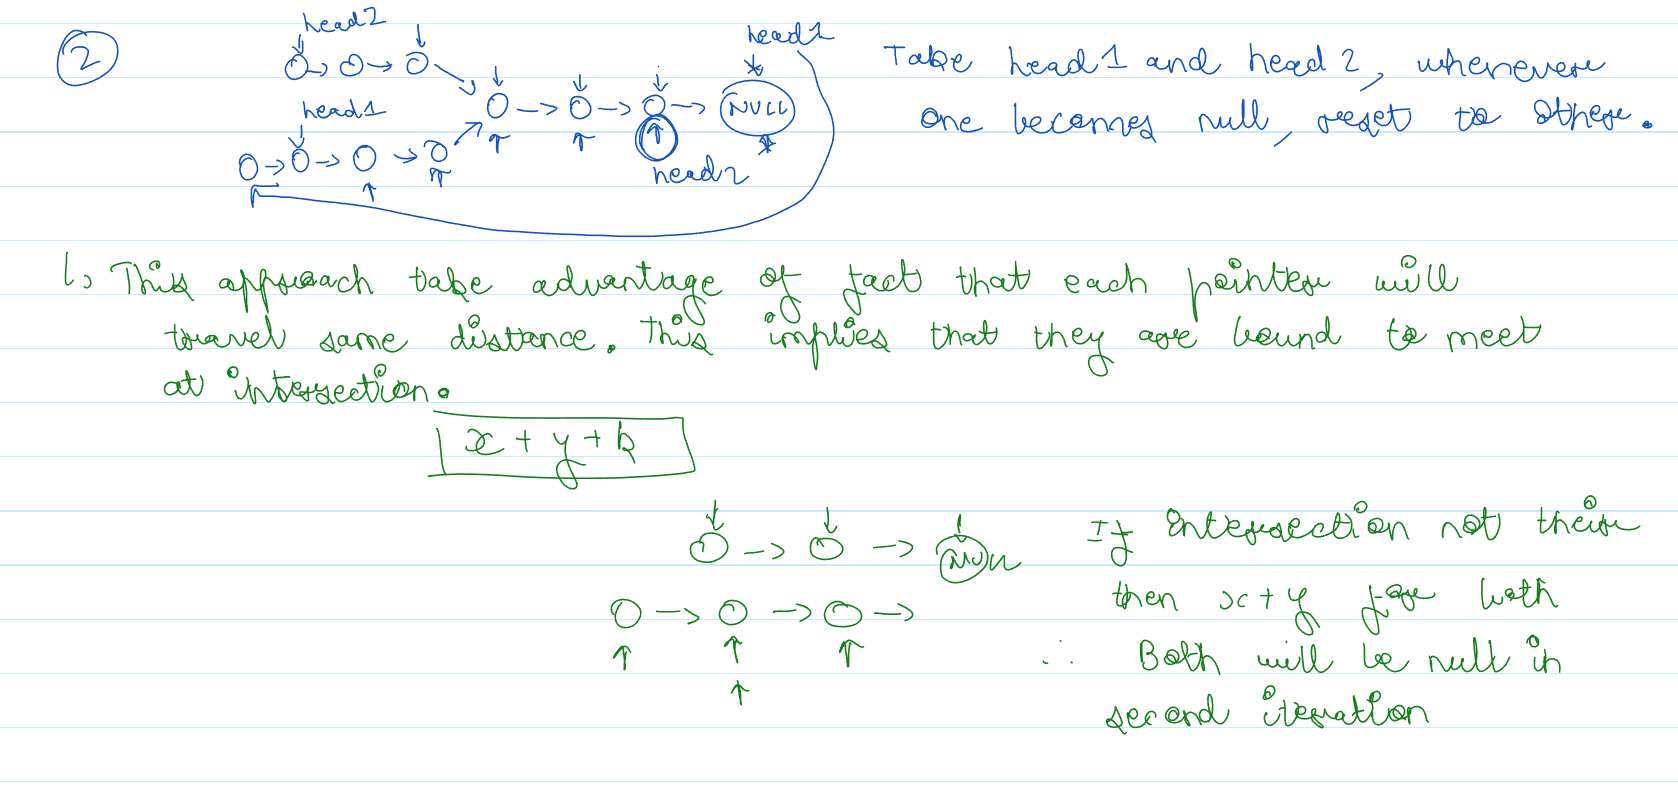 2
head2
head1
Take head1 and head2, whenever
one becomes null, reset to other.
head1
NULL
head2
↳ This approach take advantage of fact that each pointer will
travel same distance. This implies that they are bound to meet
at intersection.
x + y + k
NULL
If Intersection not their
then x + y for both
∴ Both will be null in
second iteration